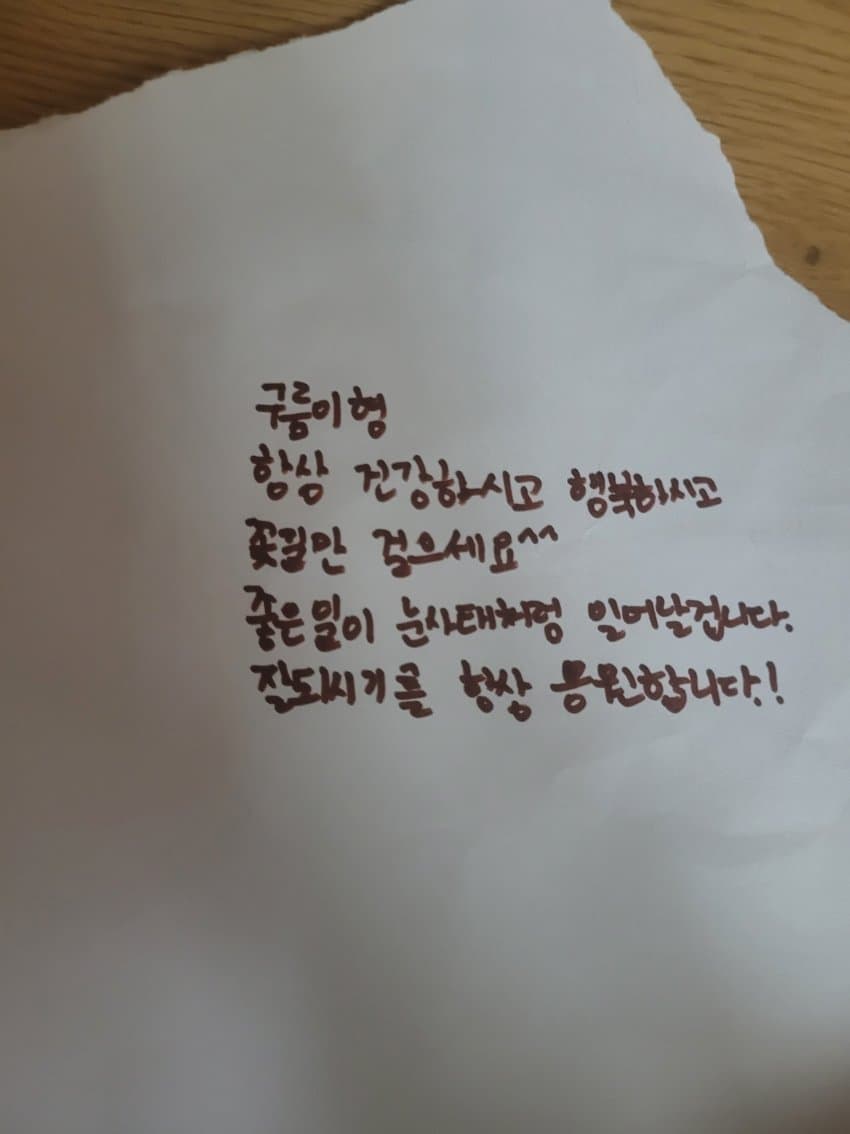 구름이형
항상 건강하시고 행복하시고
꽃길만 걸으세요^^
좋은일이 눈사태처럼 일어날겁니다.
잘되시기를 항상 응원합니다.!